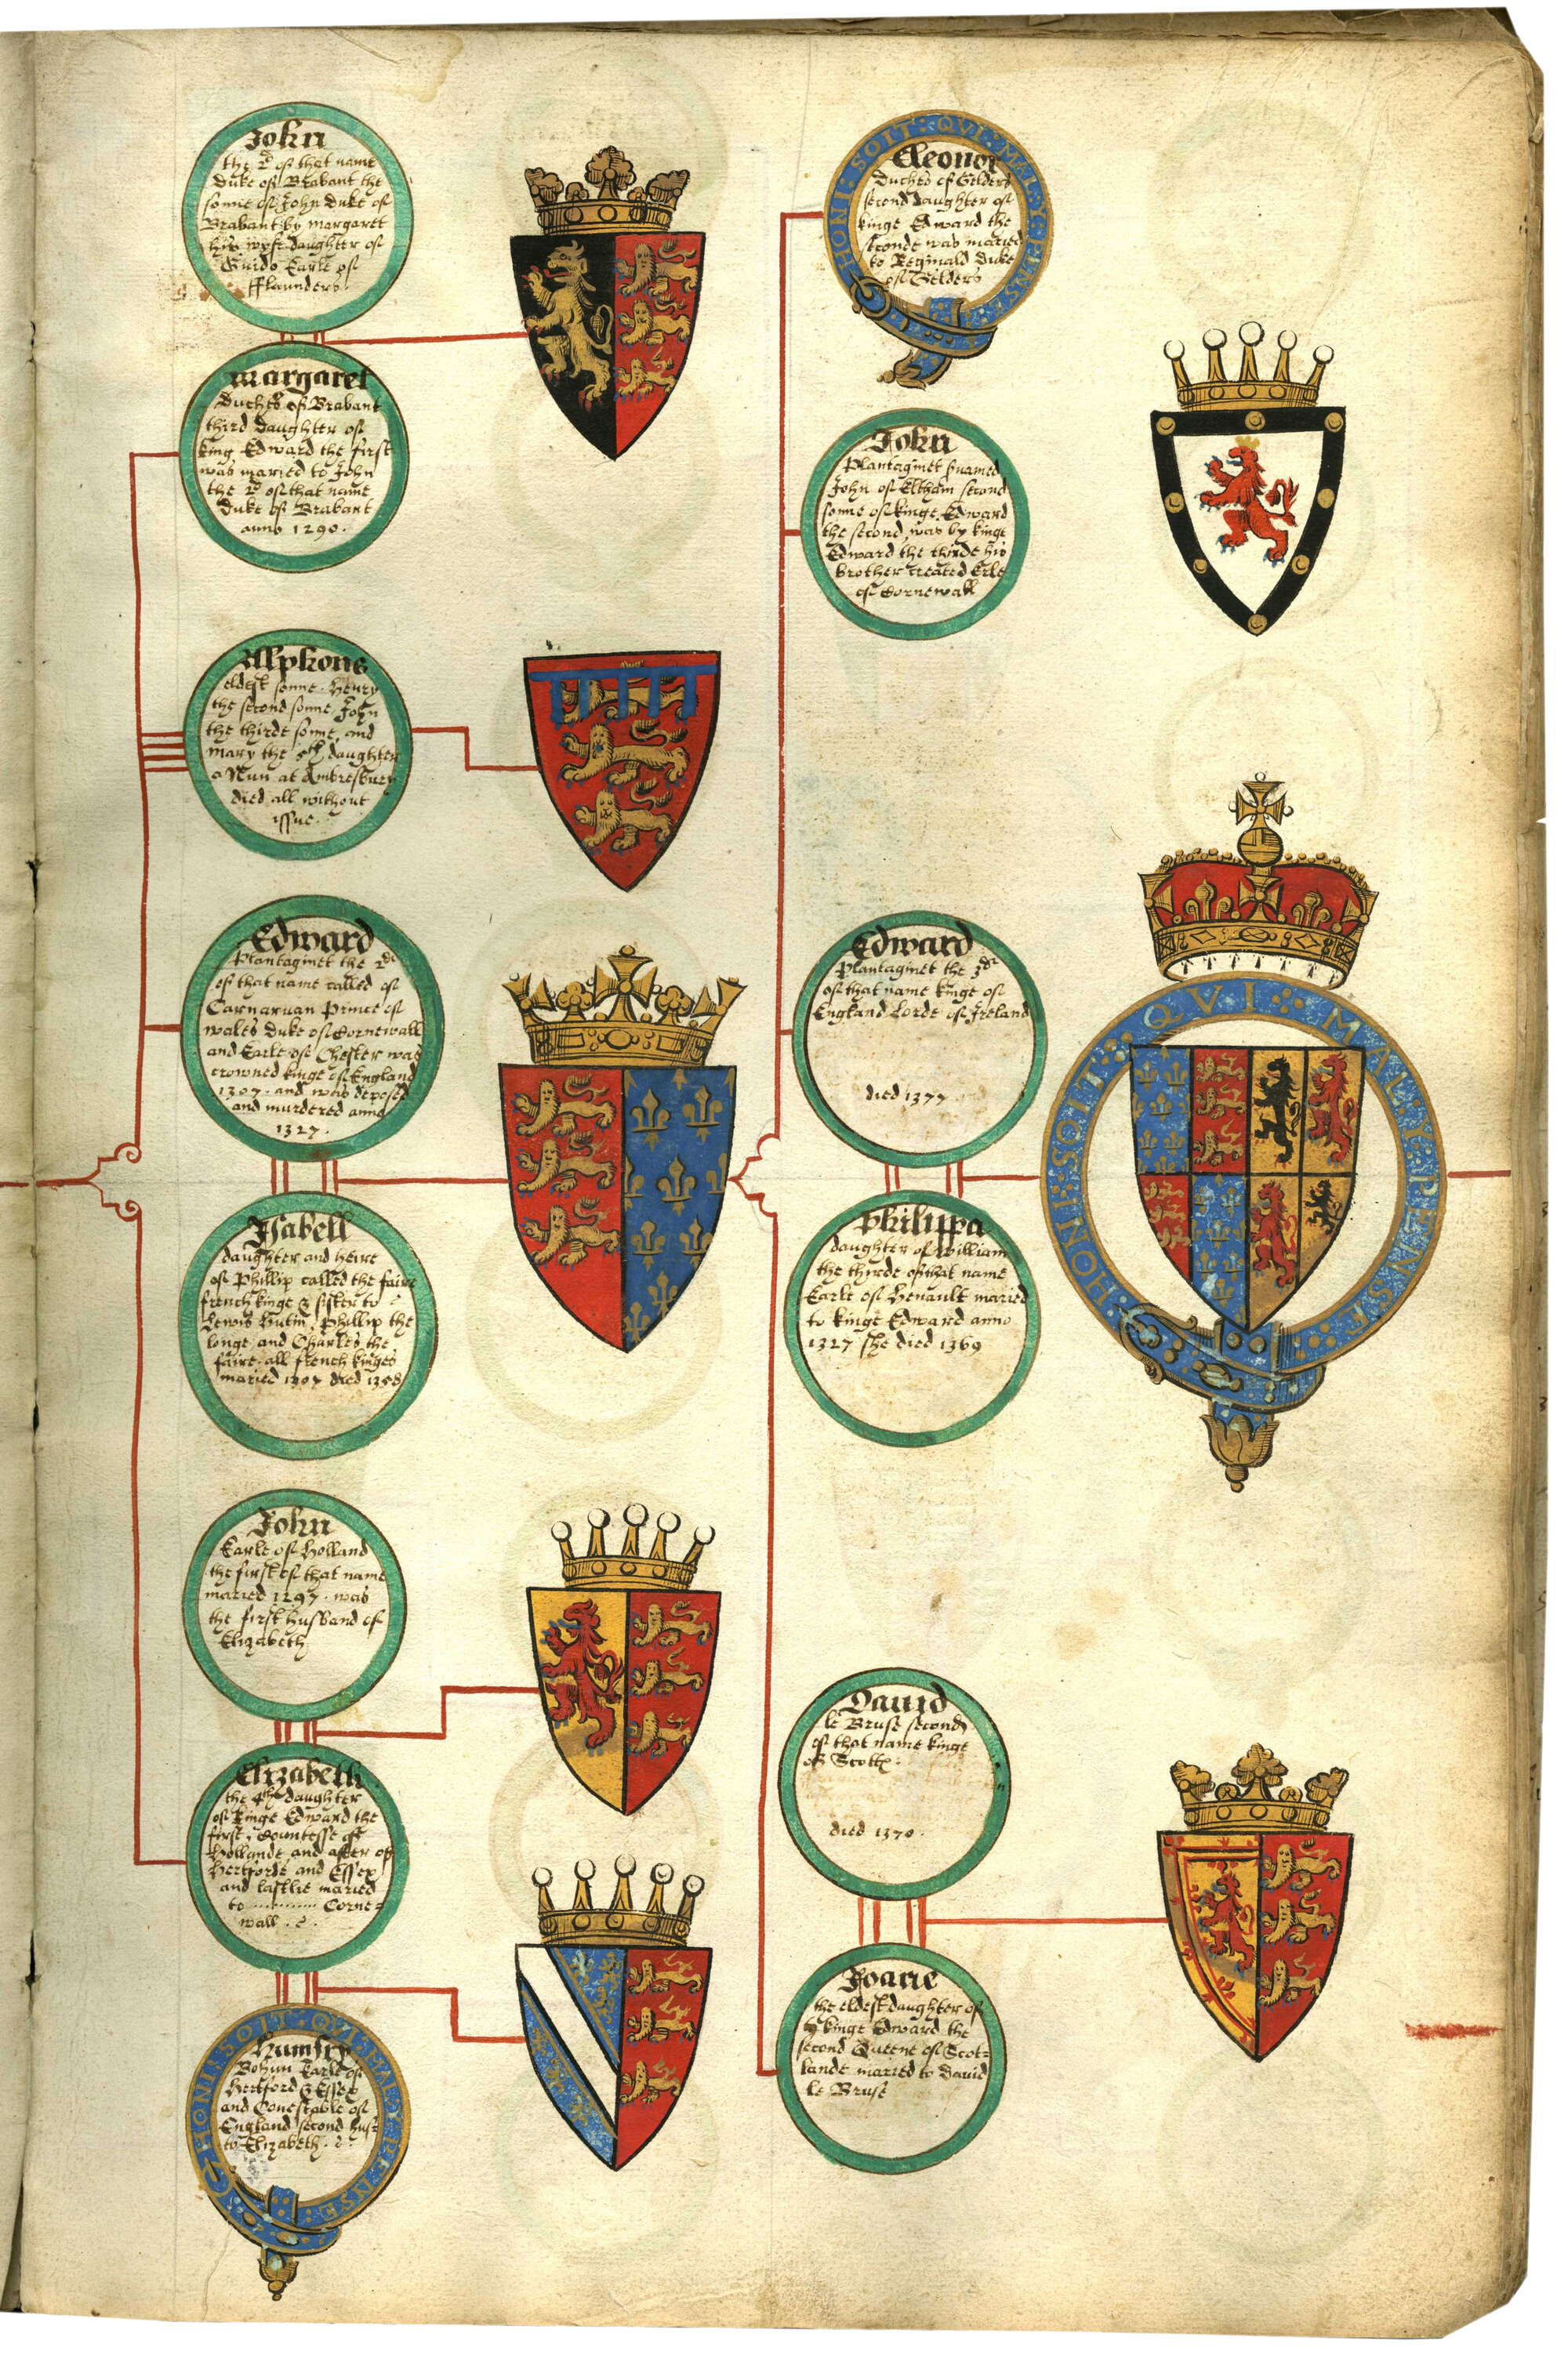 John
the 2d of that name
Duke of Brabant the
sonne of John duke of
Brabant by margaret
his wyfe daughter of
Guido Earle of
fflaunders.
Margaret
Duches of Brabant
third daughter of
king Edward the first
was maried to John
the 2d of that name
Duke of Brabant
anno 1290.
Alphons
eldest sonne. Henry
the second sonne, John
the thirde sonne, and
mary the 5th daughter
a Nun at Ambresbury
died all without
issue.
Edward
Plantaginet the 2d
of that name called of
Carnaruan Prince of
wales Duke of Cornewall
and Earle of Chester was
crowned kinge of England
1307. and was deposed
and murdered anno
1327.
Isabell
daughter and heire
of Phillip called the faire
french kinge & sister to
Lewis Hutin, Phillip the
longe and Charles the
faire. all french kinges
maried 1307 died 1358
John
Earle of Holland
the first of that name
maried 1297. was
the first husband of
Elizabeth
Elizabeth
the 4th daughter
of kinge Edward the
first, Countesse of
Hollande and after of
Hertforde and Essex
and lastlie maried
to ............ Corne=
wall.
HONI SOIT QVI MAL Y PENSE
Humfry
Bohun Earle of
Hertford & Essex
and Conestable of
England second hus:
to Elizabeth.
HONI: SOIT: QVI: MAL: Y: PENSE
Eleonor
Duches of Gelders
second daughter of
kinge Edward the
seconde was maried
to Reginald duke
of Gelders
John
Plantaginet surnamed
John of Eltham second
sonne of kinge Edward
the second, was by kinge
Edward the thirde his
brother created Erle
of Cornewall
Edward
Plantaginet the 3d
of that name kinge of
England Lorde of Ireland
died 1377
Philippa
daughter of William
the thirde of that name
Earle of Henault maried
to kinge Edward anno
1327 she died 1369
HONI: SOIT: QVI MAL: Y: PENSE
Dauid
le Bruse second
of that name kinge
of Scotts.
died 1370.
Joane
the eldest daughter of
kinge Edward the
second Queene of Scot=
lande maried to Dauid
le Bruse